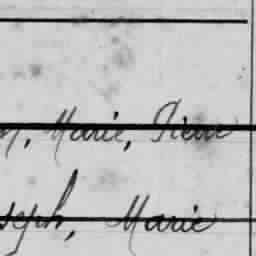 , Marie, Pierre
seph, Marie